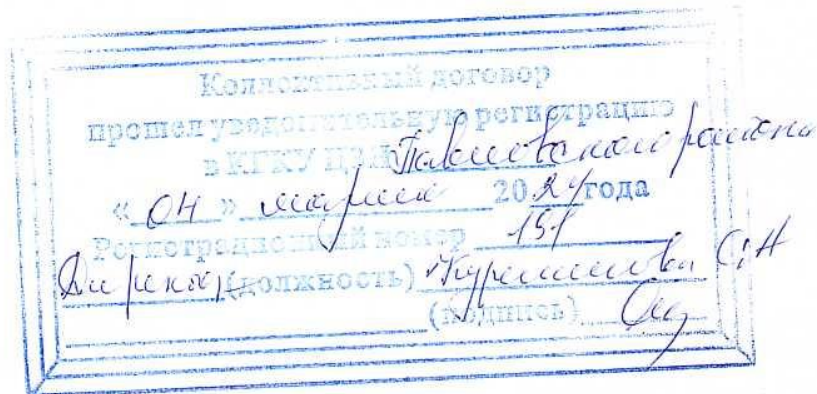 Коллективный договор
прошел уведомительную регистрацию
в КГКУ ЦЗН Павловского района
« 04 » марта 2024 года
Регистрационный номер 151
Директор (должность) С.Н
(подпись)